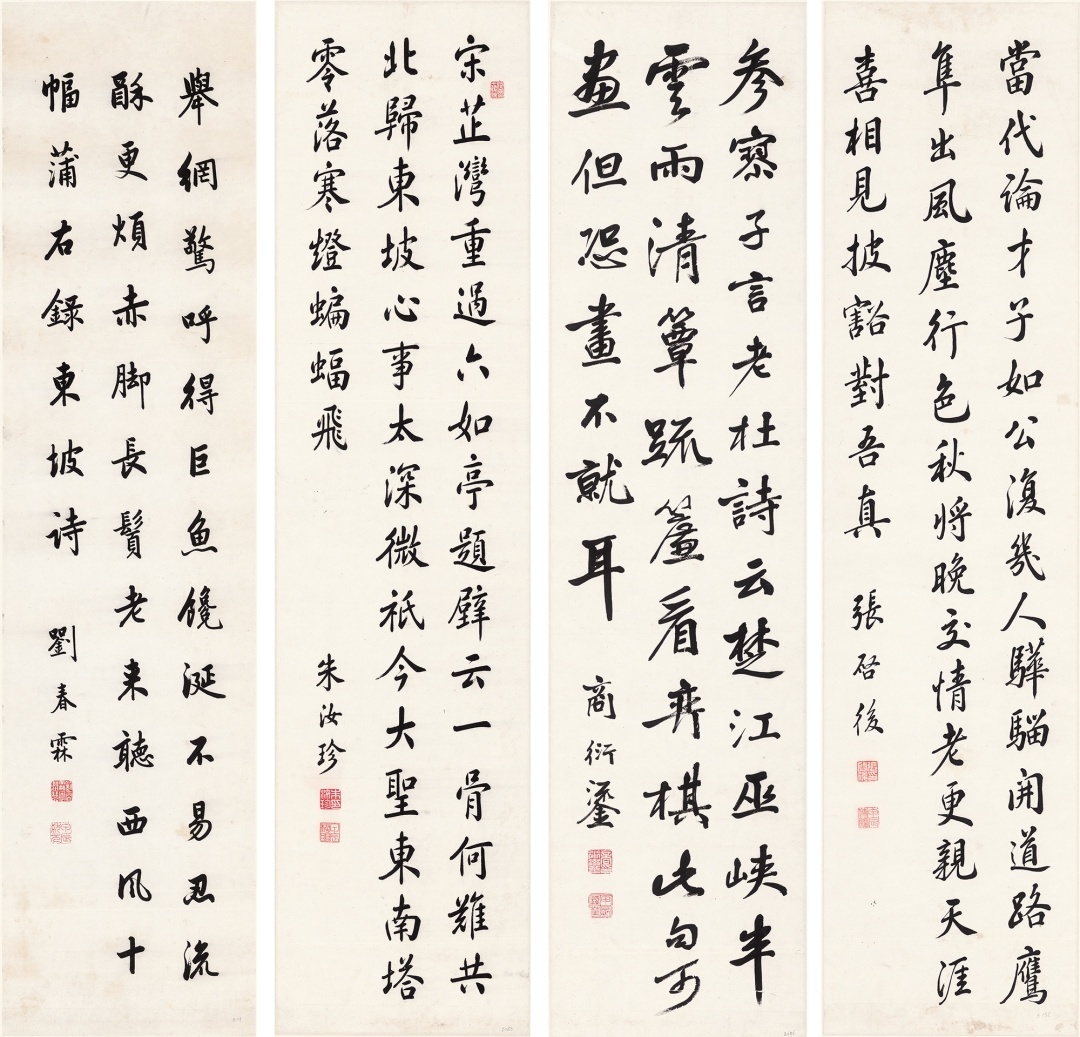 當代論才子如公復幾人驊騮開道路鷹
隼出風塵行色秋將晚交情老更親天涯
喜相見披豁對吾真 張啓後
參寥子言老杜詩云楚江巫峽半
雲雨清簟疏簾看弈棋此句可
畫但恐畫不就耳 商衍鎏
宋芷灣重過六如亭題壁云一骨何難共
北歸東坡心事太深微祇今大聖東南塔
零落寒燈蝙蝠飛 朱汝珍
舉網驚呼得巨魚饞涎不易忍流
酥更煩赤脚長鬚老来聽西風十
幅蒲右錄東坡诗 劉春霖